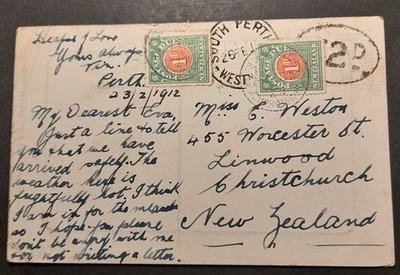 Heaps of Love
Yours always
Perth
23/2/1912
My Dearest Eva,
Just a line to tell
you that we have
arrived safely. The
weather here is
frightfully hot. I think
I am in for the
so I hope you please
don't be angry with me
for not writing a letter.
POSTAGE DUE
1D
NEW ZEALAND
SOUTH PERTH
WEST
POSTAGE DUE
1D
NEW ZEALAND
2D.
Miss E. Weston
455 Worcester St.
Linwood
Christchurch
New Zealand